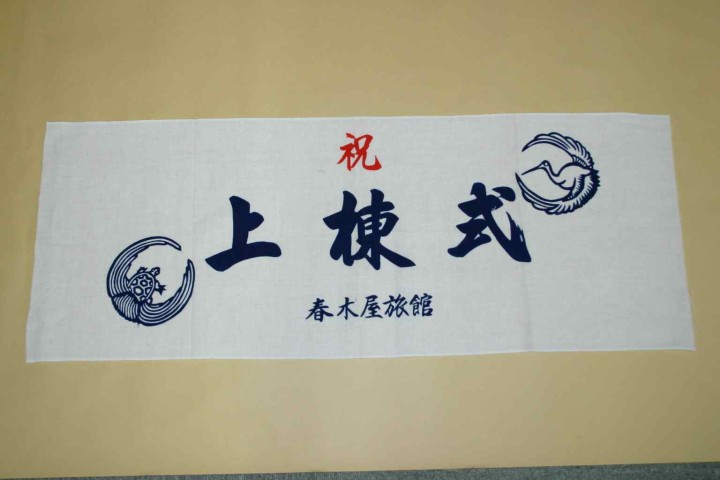 祝
上棟式
春木屋旅館